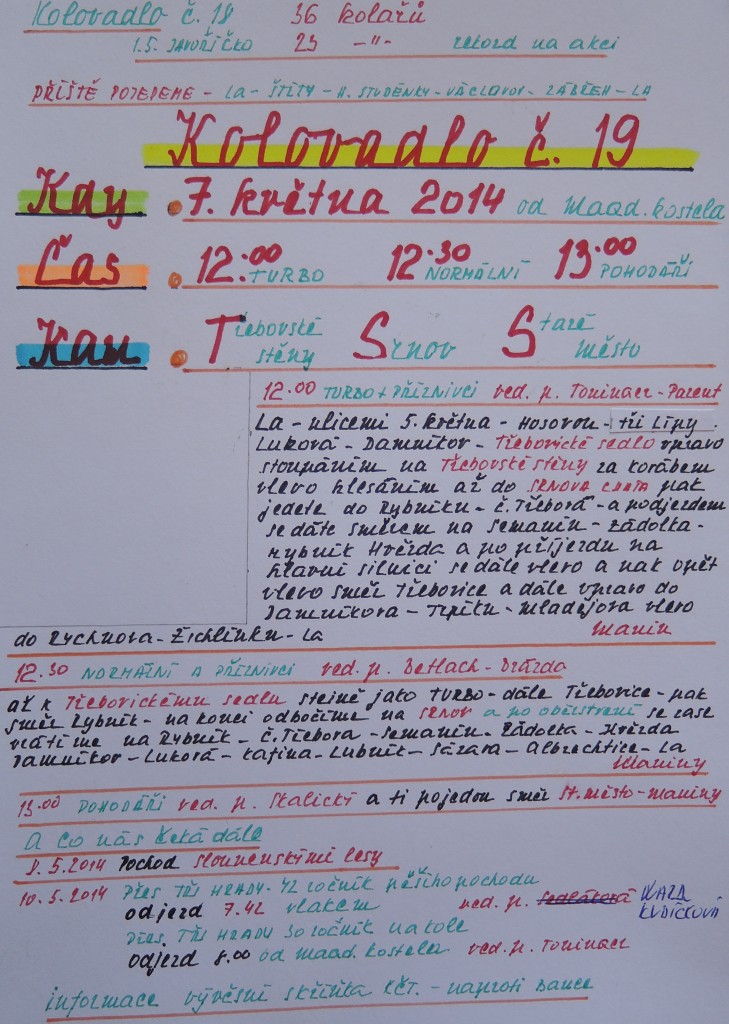 Kolovadlo č. 18 36 kolařů
1.5. JAVOŘÍČKO 25 -"- rekord na akci
PŘÍŠTĚ POJEDEME - LA - ŠTÍTY - H. STUDÉNKY - VÁCLAVOV - ZÁBŘEH - LA
Kolovadlo č. 19
Kdy • 7. května 2014 od Magd. kostela
Čas • 12.00 TURBO 12.30 NORMÁLNÍ 13.00 POHODÁŘI
Kam • Třebovské stěny Srnov Staré město
12.00 TURBO + PŘÍZNIVCI ved. p. Toninger - Parent
LA - ulicemi 5. května - Hosovou - tři Lípy.
Luková - Damníkov - Třebovické sedlo vpravo
stoupáním na Třebovské stěny za korábem
vlevo klesáním až do SRNOVA CHATA pak
jedete do Rybníku - č. Třebová - a podjezdem
se dáte směrem na Semanín - Zádolka -
rybník Hvězda a po příjezdu na
hlavní silnici se dále vlevo a pak opět
vlevo směr Třebovice a dále vpravo do
Damníkova - Trpíku - Mladějova vlevo
do Rychnova - Žichlínku - LA Maniny
12.30 NORMÁLNÍ A PŘÍZNIVCI ved. p. Betlach - Drázda
až k Třebovickému sedlu stejně jako TURBO - dále Třebovice - pak
směr Rybník - na konci odbočíme na SRNOV a po občerstvení se zase
vrátíme na Rybník - č. Třebová - Semanín - Zádolka - Hvězda
Damníkov - Luková - Laština - Lubník - Sázava - Albrechtice - LA
Maniny
13.00 POHODÁŘI ved. p. Skalický a ti pojedou směr St. město - maniny
A co nás čeká dále
8.5.2014 Pochod slovenskými lesy
10.5.2014 Přes TŘI HRADY - 42 ročník pěšího pochodu
odjezd 7.42 vlakem ved. p. KUBÍČKOVÁ
Přes TŘI HRADY 30 ročník na kole
odjezd 8.00 od Magd. kostela ved. p. Toninger
informace vývěsní skříňka KČT. - naproti Bance